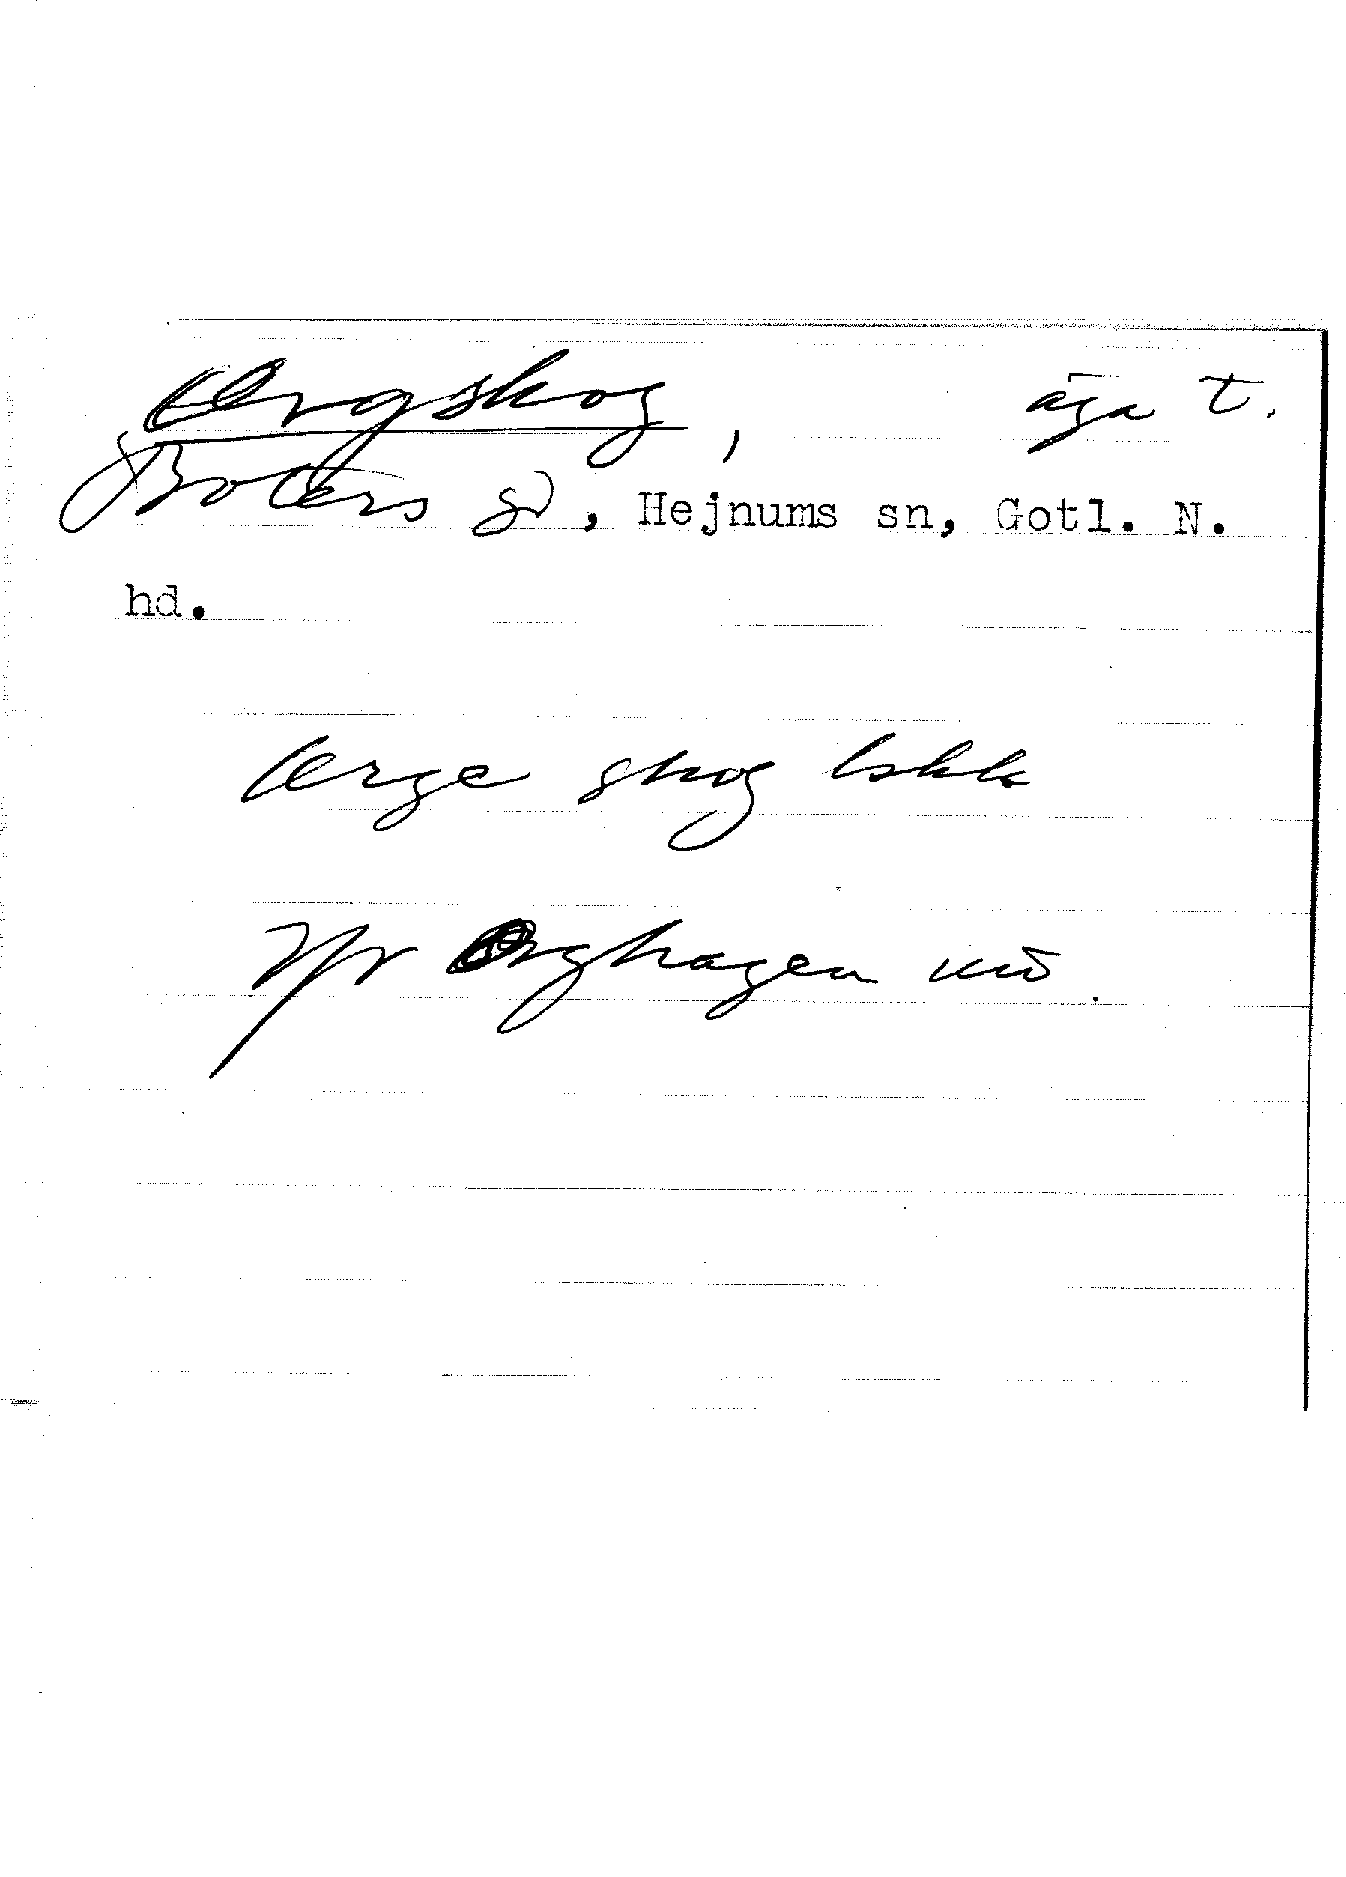 Orgskog, äga t.
Boters gd, Hejnums sn, Gotl. N.
hd.
Orge skog
Orghagen